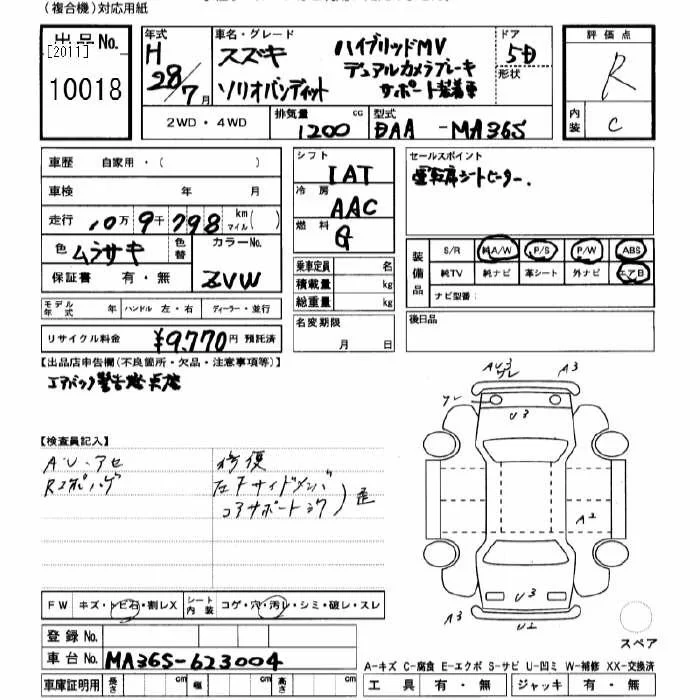 (複合機)対応用紙
出品No.
[2011]
10018
年式
H
28/7月
車名・グレード
スズキ
ソリオバンディット
ハイブリッドMV
デュアルカメラブレーキ
サポート装着車
ドア
5D
形状
2WD・4WD
排気量
1200 cc
型式
DAA-MA36S
評価点
R
内装
C
車歴 自家用・( )
車検 年 月
走行 10万9千798 km マイル( )
色 ムラサキ 色替 カラーNo. ZVW
保証書 有・無
モデル年式 年 ハンドル 左・右 ディーラー・並行
リサイクル料金 ¥9,770円 預託済
シフト
IAT
冷房
AAC
燃料
G
乗車定員 名
積載量 kg
総重量 kg
名変期限
月 日
セールスポイント
運転席シートヒーター.
装備品
S/R 純A/W P/S P/W ABS
純TV 純ナビ 革シート 外ナビ エアB
ナビ型番:
後日品
【出品店申告欄(不良箇所・欠品・注意事項等)】
エアバック警告燈点燈
【検査員記入】
A・U・アセ
Rエポハゲ
修復
左下サイドメンバ
コアサポートジク
) 歪
AU3
ワレ
A3
ワレ
U3
A2
U3
A3
U2
スペア
FW キズ・トビ石・割レX
シート内装 コゲ・穴・汚レ・シミ・破レ・スレ
登録No.
車台No. MA36S-623004
車庫証明用 長さ cm 幅 cm 高さ cm
A-キズ C-腐食 E-エクボ S-サビ U-凹ミ W-補修 XX-交換済
工具 有・無 ジャッキ 有・無